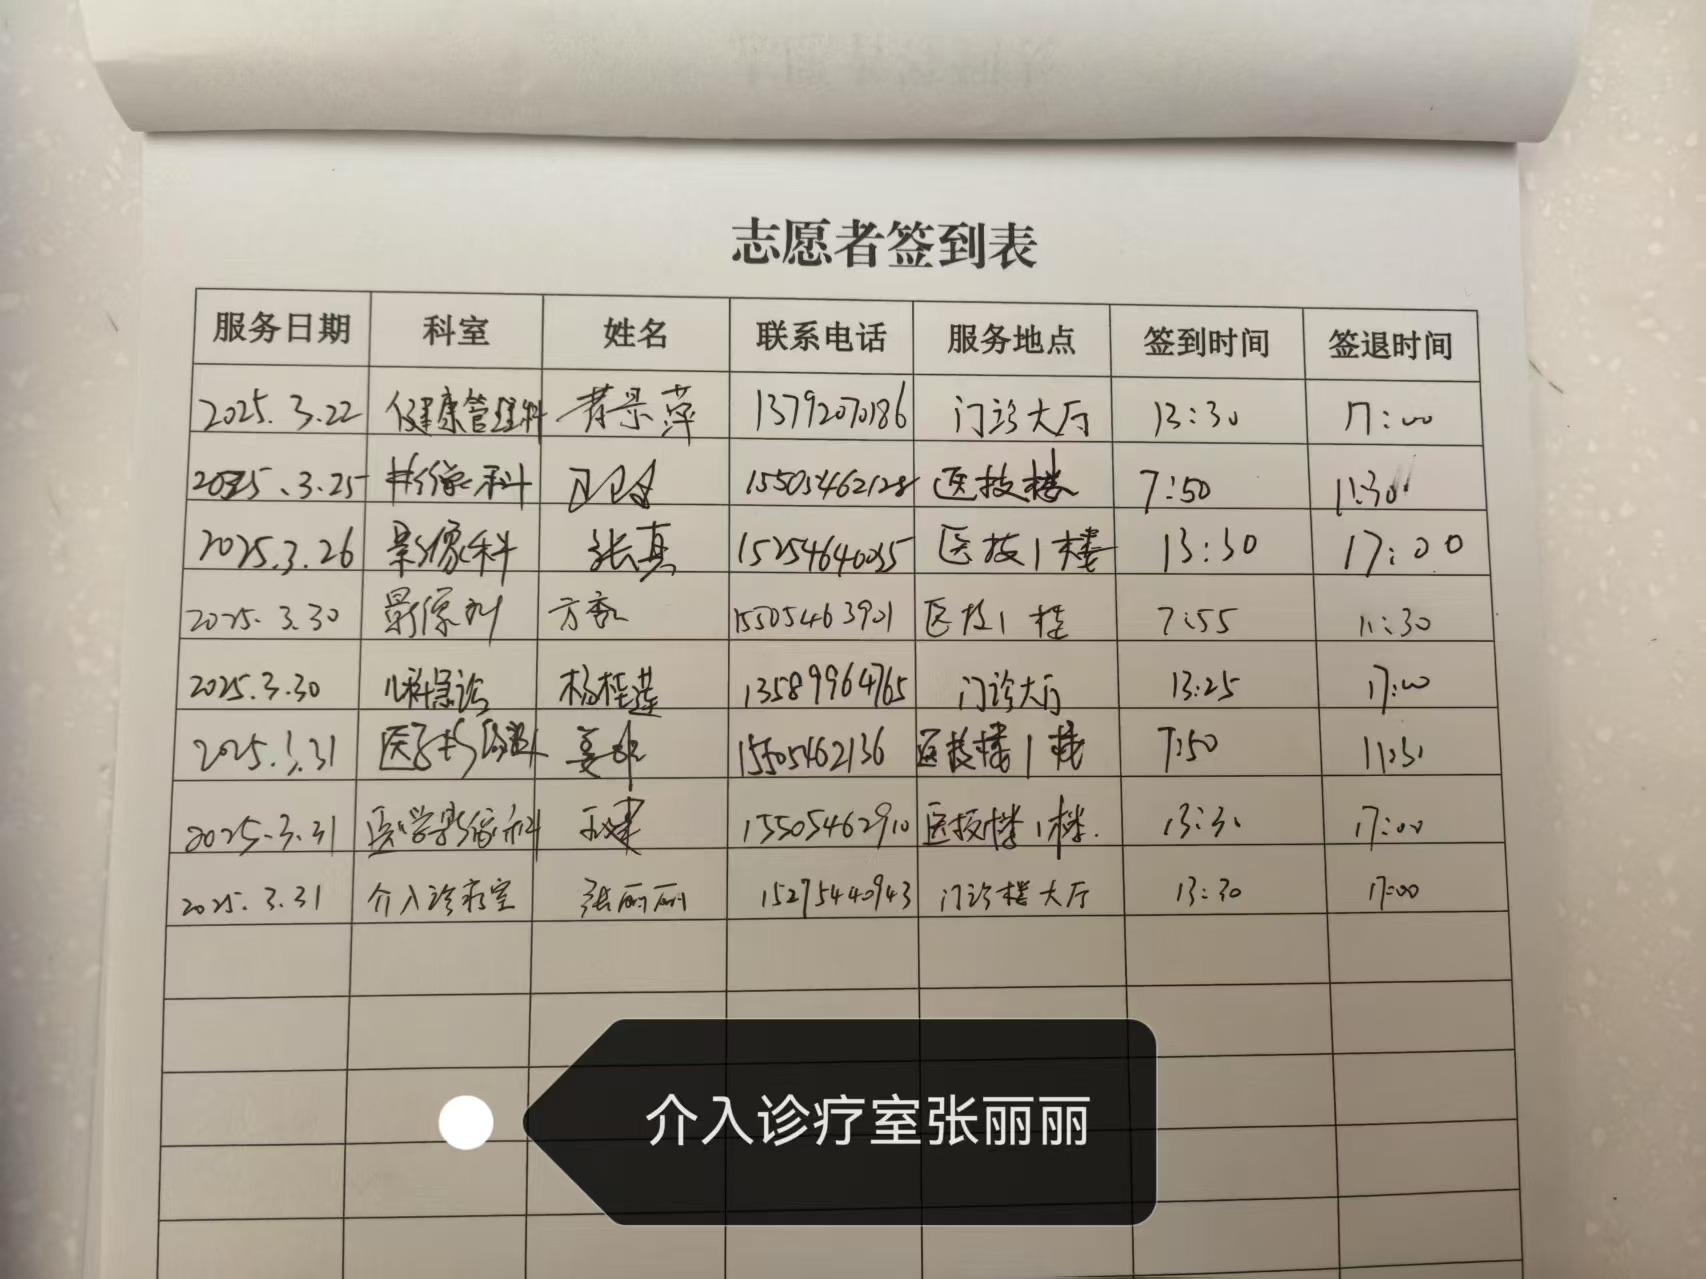 志愿者签到表
服务日期 科室 姓名 联系电话 服务地点 签到时间 签退时间
2025.3.22 健康管理科 景萍 13792070186 门诊大厅 13:30 17:00
2025.3.25 影像科 15505462128 医技楼 7:50 11:30
2025.3.26 影像科 张真 15254640035 医技1楼 13:30 17:00
2025.3.30 影像科 方 15505463901 医技1楼 7:55 11:30
2025.3.30 儿科急诊 杨桂莲 13589964765 门诊大厅 13:25 17:00
2025.3.31 医学影像科 姜 15505462136 医技楼1楼 7:50 11:31
2025.3.31 医学影像科 15505462910 医技楼1楼. 13:30 17:00
2025.3.31 介入诊疗室 张丽丽 15275440943 门诊楼大厅 13:30 17:00
介入诊疗室张丽丽